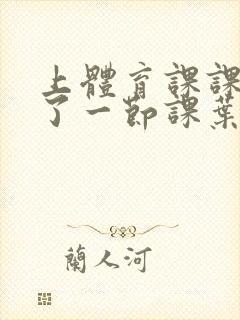 上體育課課
了一節課葉
蘭人河